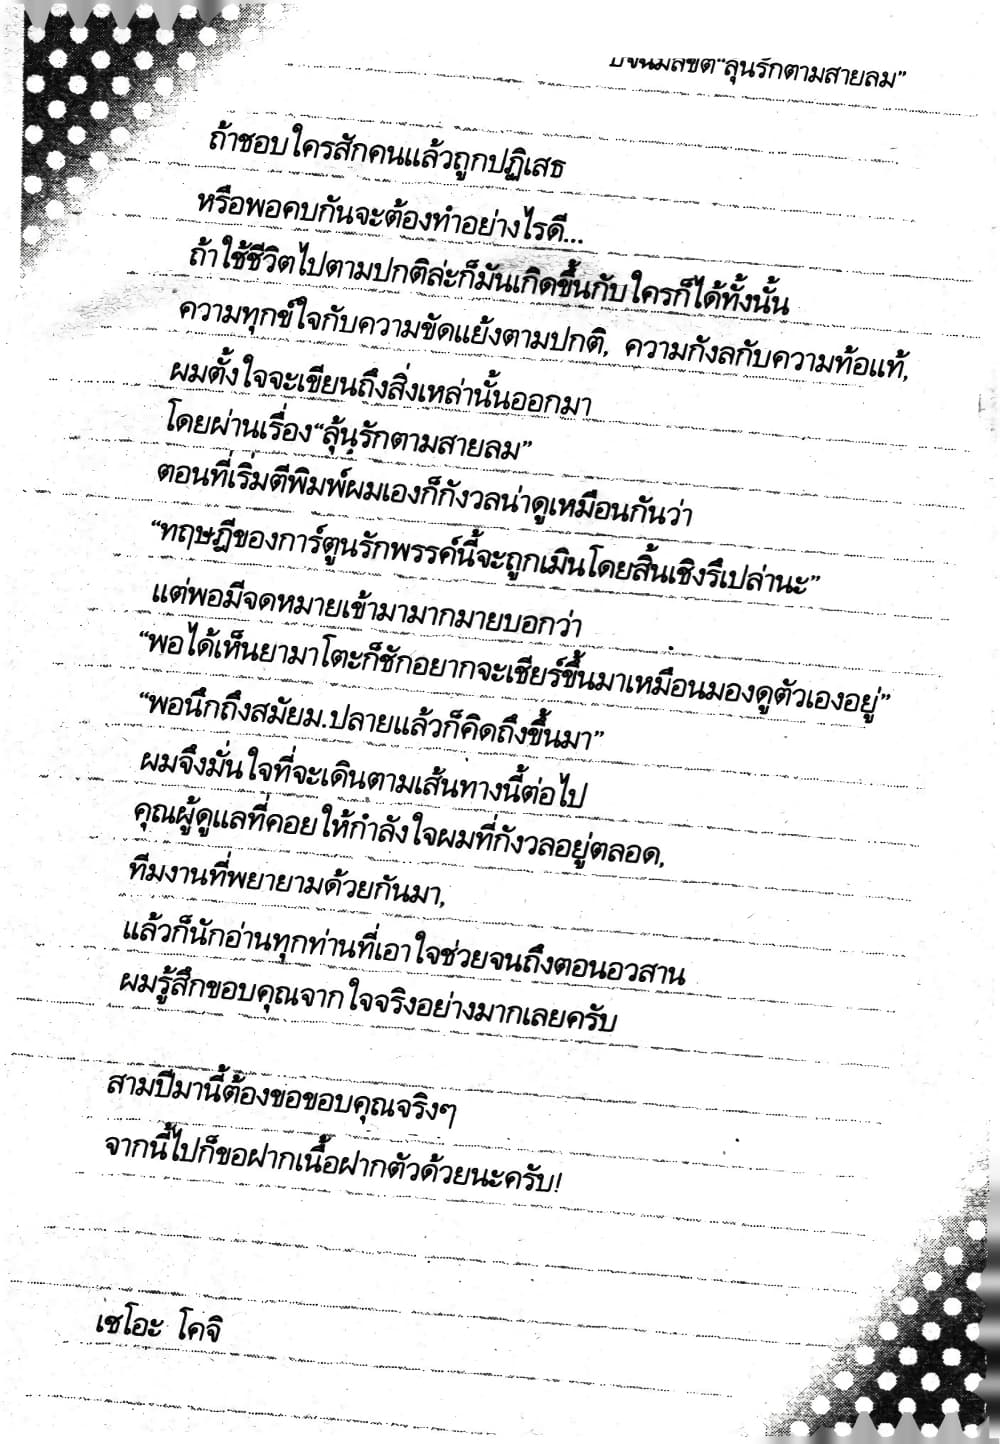 ปัจฉิมลิขิต“ลุ้นรักตามสายลม”
ถ้าชอบใครสักคนแล้วถูกปฏิเสธ
หรือพอคบกันจะต้องทำอย่างไรดี...
ถ้าใช้ชีวิตไปตามปกติล่ะก็มันเกิดขึ้นกับใครก็ได้ทั้งนั้น
ความทุกข์ใจกับความขัดแย้งตามปกติ, ความกังลกับความท้อแท้,
ผมตั้งใจจะเขียนถึงสิ่งเหล่านั้นออกมา
โดยผ่านเรื่อง“ลุ้นรักตามสายลม”
ตอนที่เริ่มตีพิมพ์ผมเองก็กังวลน่าดูเหมือนกันว่า
“ทฤษฎีของการ์ตูนรักพรรค์นี้จะถูกเมินโดยสิ้นเชิงรึเปล่านะ”
แต่พอมีจดหมายเข้ามามากมายบอกว่า
“พอได้เห็นยามาโตะก็ชักอยากจะเชียร์ขึ้นมาเหมือนมองดูตัวเองอยู่”
“พอนึกถึงสมัยม.ปลายแล้วก็คิดถึงขึ้นมา”
ผมจึงมั่นใจที่จะเดินตามเส้นทางนี้ต่อไป
คุณผู้ดูแลที่คอยให้กำลังใจผมที่กังวลอยู่ตลอด,
ทีมงานที่พยายามด้วยกันมา,
แล้วก็นักอ่านทุกท่านที่เอาใจช่วยจนถึงตอนอวสาน
ผมรู้สึกขอบคุณจากใจจริงอย่างมากเลยครับ
สามปีมานี้ต้องขอขอบคุณจริงๆ
จากนี้ไปก็ขอฝากเนื้อฝากตัวด้วยนะครับ!
เซโอะ โคจิ